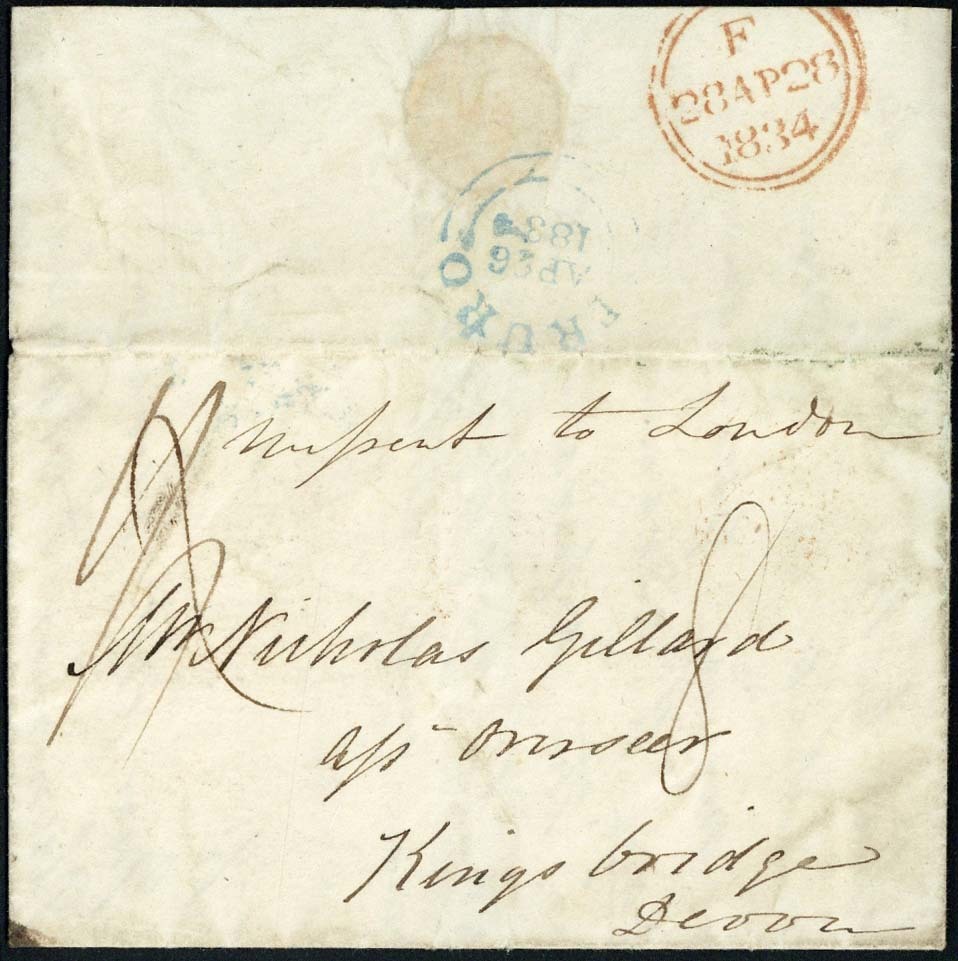 F
28AP28
1834
TRURO
AP26
183
Missent to London
8
Mr Nicholas Gillard
aſst Overseer
Kingsbridge
Devon